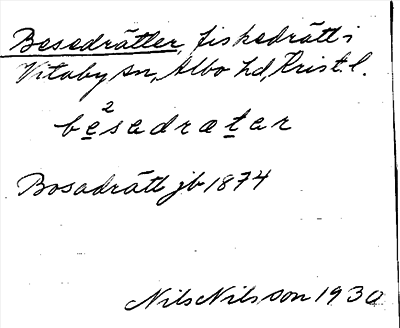 Besedrätter, fiskedrätt i
Vitaby sn, Albo hd, Krist. l.
be²sedrætar
Bosadrätt jb 1874
Nils Nilsson 1930